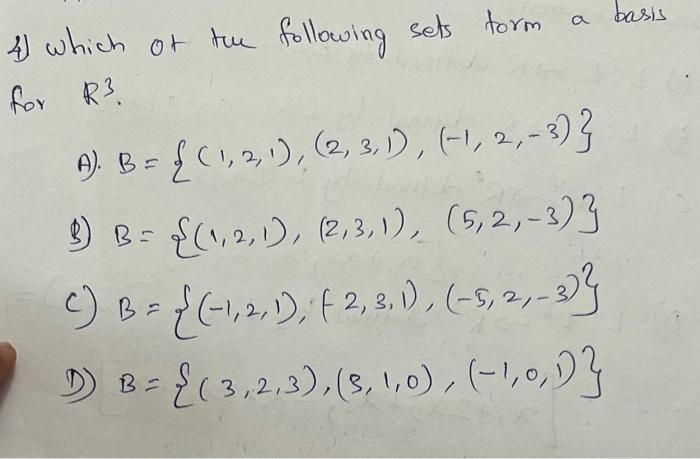 4) which of the following sets form a basis
for R³.
A). B = {(1,2,1), (2,3,1), (-1, 2,-3)}
B) B = {(1,2,1), (2,3,1), (5,2,-3)}
C) B = {(-1,2,1), (-2,3,1), (-5,2,-3)}
D) B = {(3,2,3), (3,1,0), (-1,0,1)}